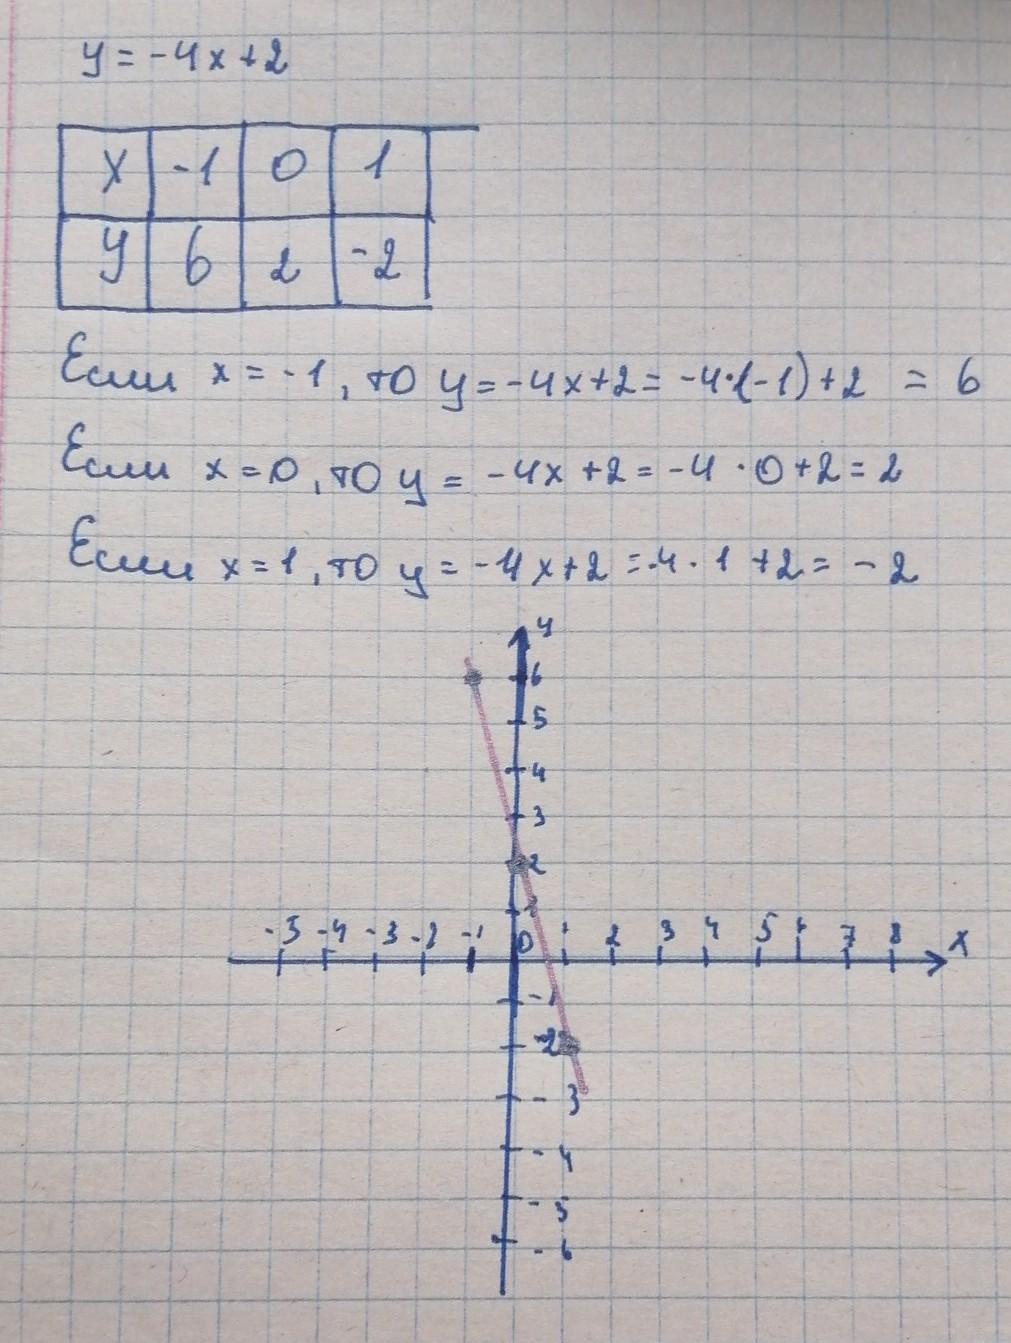 y = -4x+2
x -1 0 1
y 6 2 -2
Если x = -1, то y = -4x+2 = -4·(-1)+2 = 6
Если x = 0, то y = -4x+2 = -4·0+2 = 2
Если x = 1, то y = -4x+2 = -4·1+2 = -2
y
6
5
4
3
2
1
-5 -4 -3 -2 -1 0 1 2 3 4 5 7 8 x
-1
-2
-3
-4
-5
-6